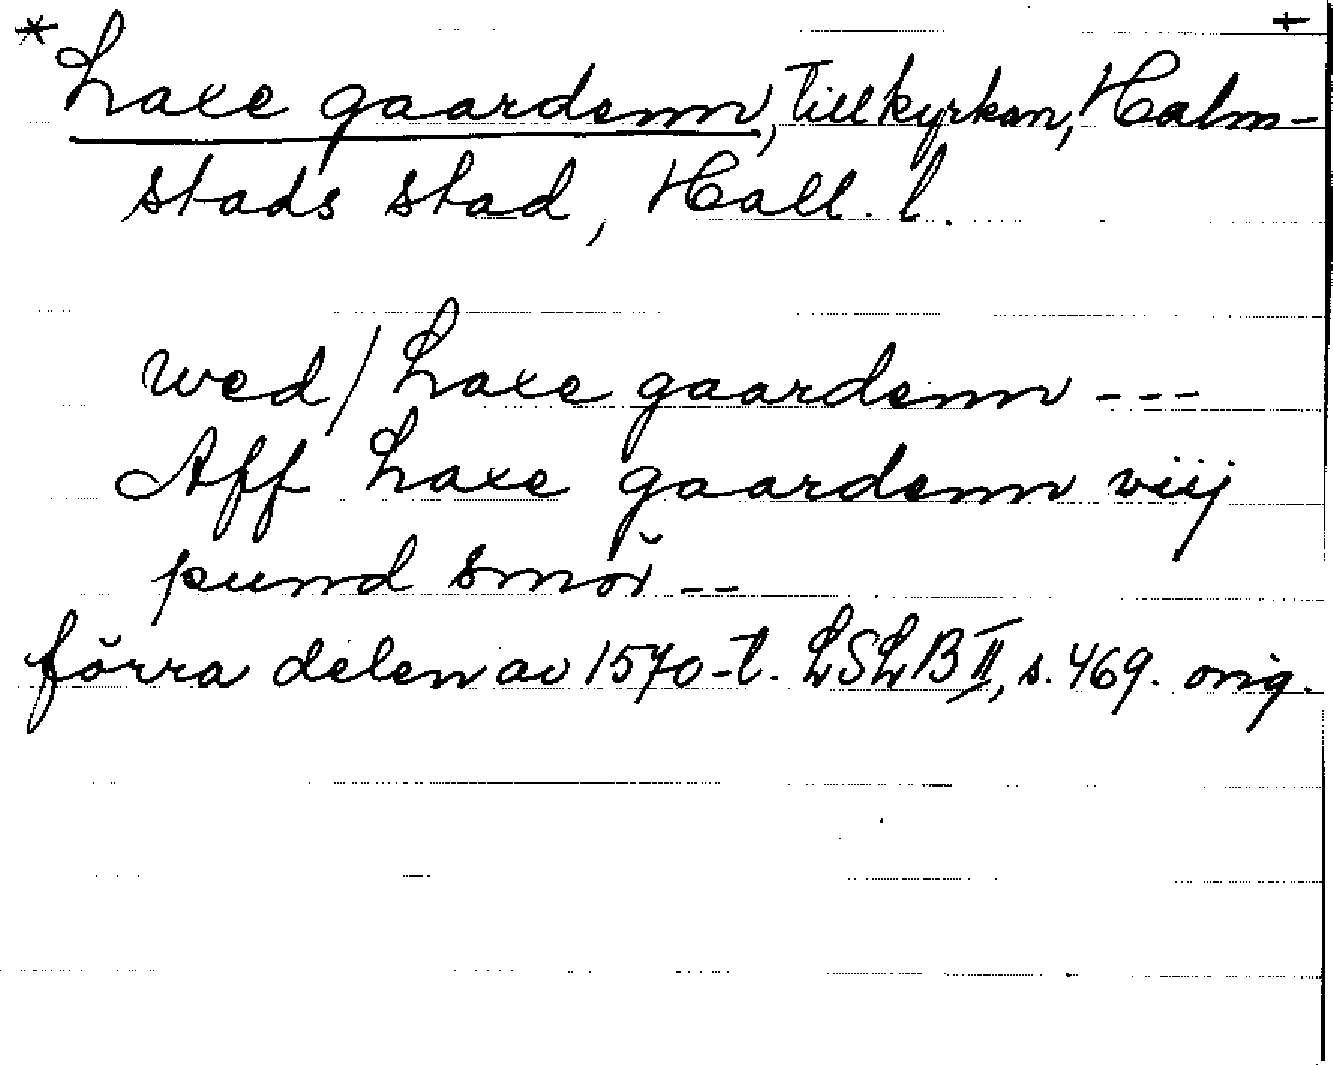 * Laxe gaardenn, Till kyrkan, Halm- +
stads stad, Hall. l.
wed/ Laxe gaardenn ---
Aff Laxe gaardenn viij
pund smör --
förra delen av 1570-t. LSLB II, s. 469. orig.